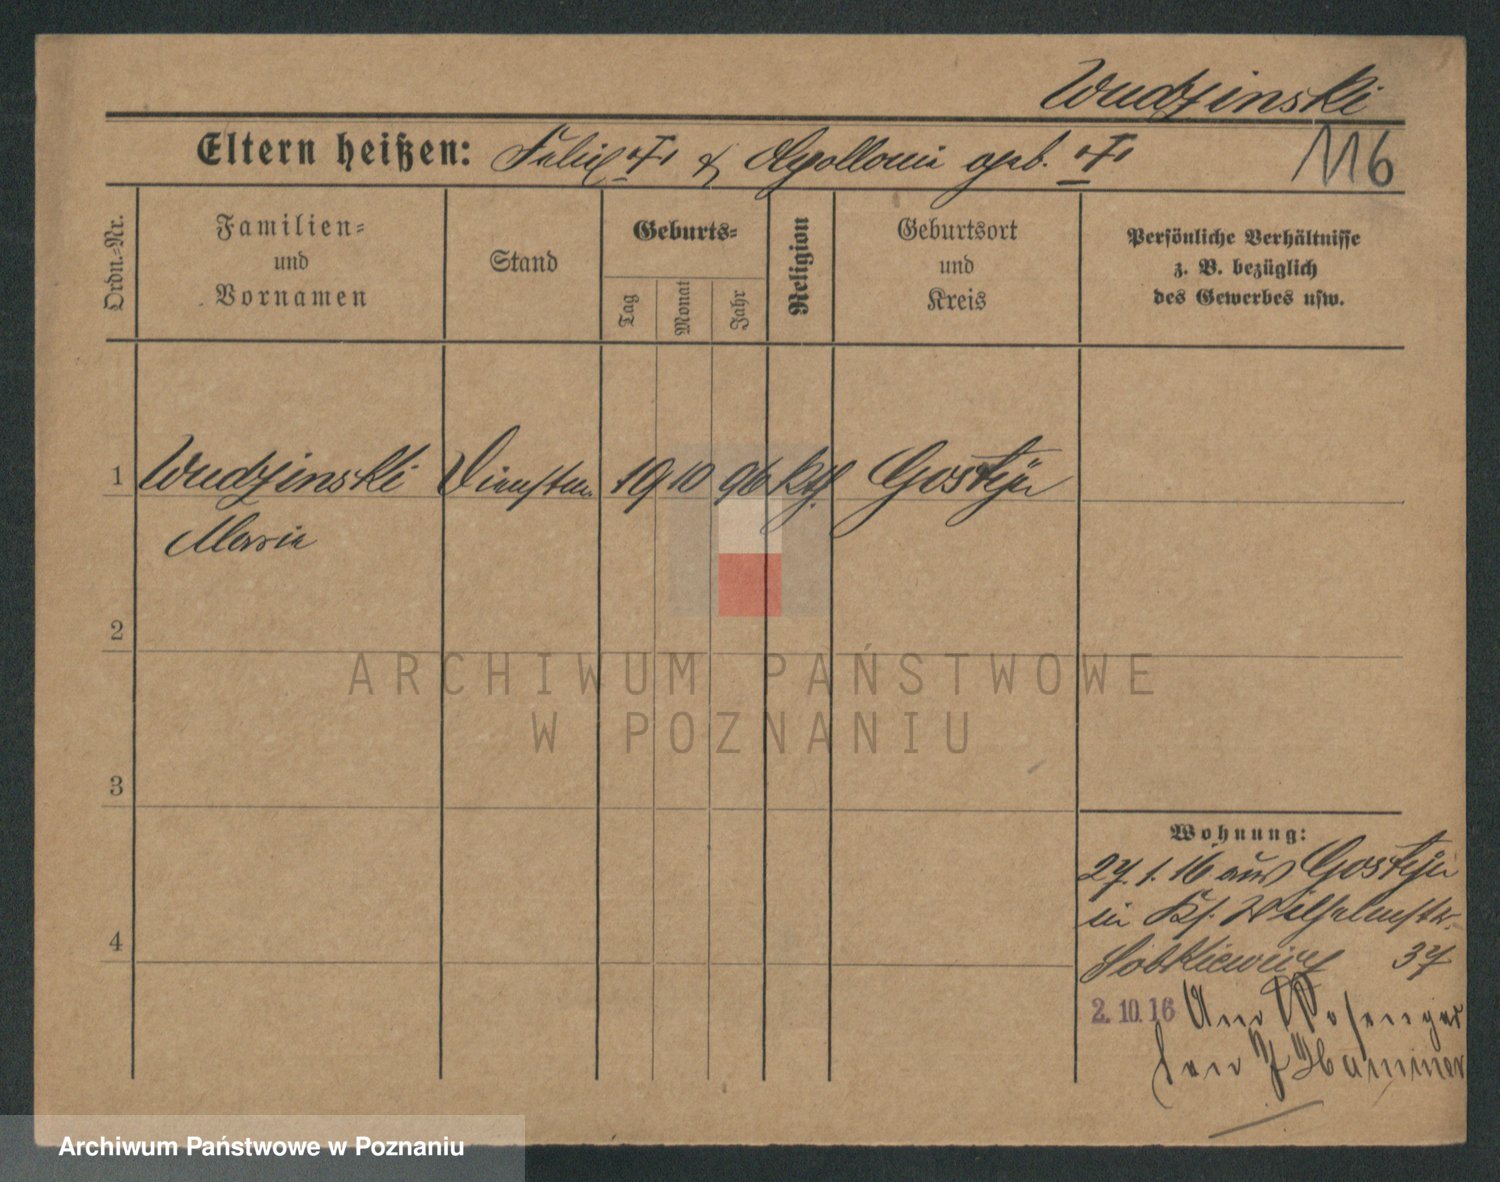 Wudzinski
116
Eltern heißen: Felix "F" & Apollonia geb. "F"
Ordn.-Nr.
Familien-
und
Vornamen
Stand
Geburts-
Tag
Monat
Jahr
Religion
Geburtsort
und
Kreis
Persönliche Verhältnisse
z. B. bezüglich
des Gewerbes usw.
1 Wudzinski Dienstm. 19 10 96 kth Gostyn
Marie
2
3
4
Wohnung:
27. 1. 16 aus Gostyn
in Wilhelmstr.
Sobkiewicz 37
2.10.16
ARCHIWUM PAŃSTWOWE
W POZNANIU
Archiwum Państwowe w Poznaniu